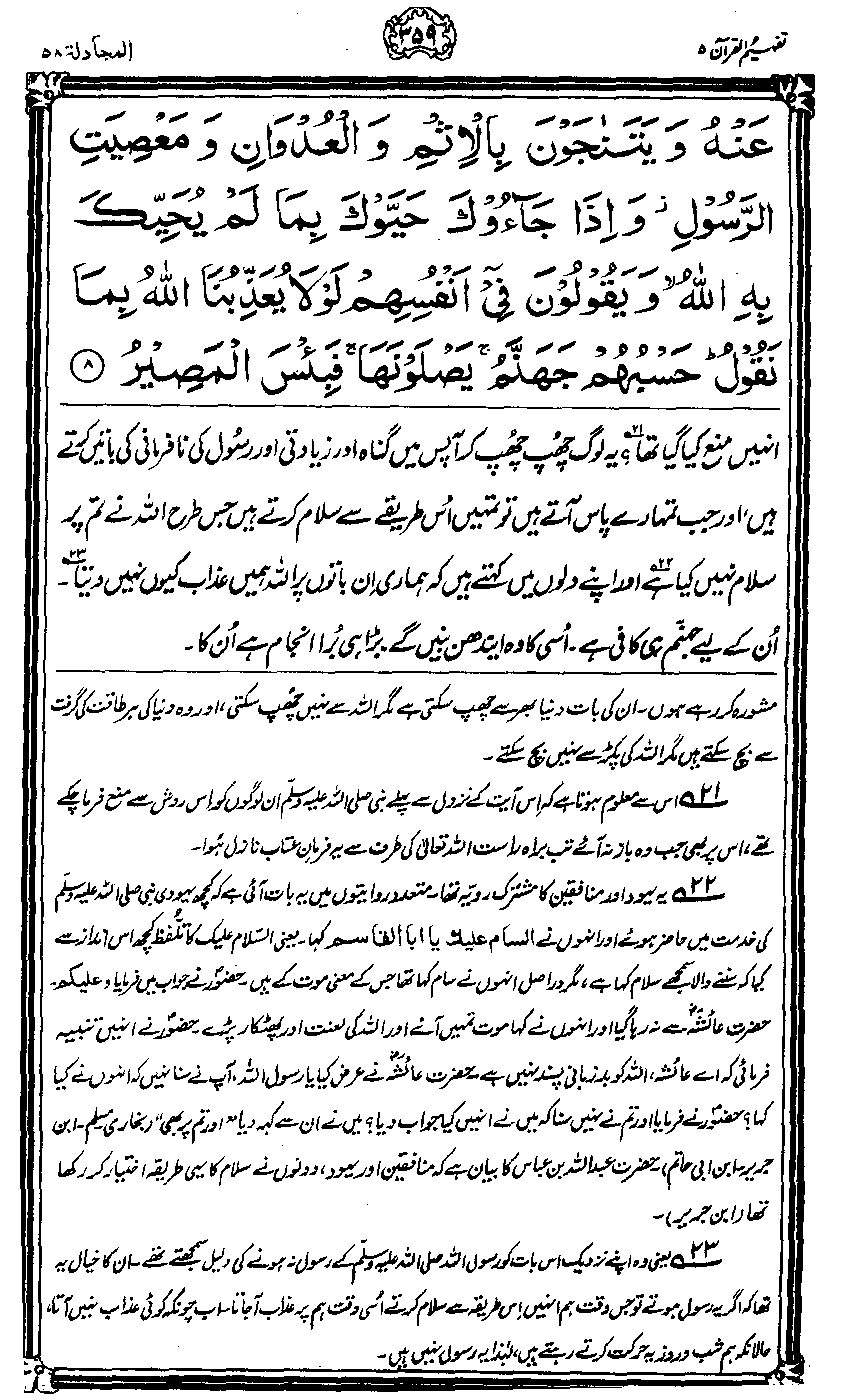 تفہیم القرآن ۵
۳۵۹
المجادلة ۵۸
عَنْهُ وَ يَتَنٰجَوْنَ بِالْاِثْمِ وَ الْعُدْوَانِ وَ مَعْصِيَتِ
الرَّسُوْلِ ز وَ اِذَا جَآءُوْكَ حَيَّوْكَ بِمَا لَمْ يُحَيِّكَ
بِهِ اللّٰهُ ۙ وَ يَقُوْلُوْنَ فِيْۤ اَنْفُسِهِمْ لَوْلَا يُعَذِّبُنَا اللّٰهُ بِمَا
نَقُوْلُ ؕ حَسْبُهُمْ جَهَنَّمُ ۚ يَصْلَوْنَهَا ۚ فَبِئْسَ الْمَصِيْرُ ۸
انہیں منع کیا گیا تھا۲۱؟ یہ لوگ چھُپ چھُپ کر آپس میں گناہ اور زیادتی اور رسُول کی نافرمانی کی باتیں کرتے
ہیں، اور جب تمہارے پاس آتے ہیں تو تمہیں اُس طریقے سے سلام کرتے ہیں جس طرح اللہ نے تم پر
سلام نہیں کیا ہے۲۲ اور اپنے دلوں میں کہتے ہیں کہ ہماری اِن باتوں پر اللہ ہمیں عذاب کیوں نہیں دیتا۲۳۔
اُن کے لیے جہنّم ہی کافی ہے۔ اُسی کا وہ ایندھن بنیں گے۔ بڑا ہی بُرا انجام ہے اُن کا۔
مشورہ کر رہے ہوں۔ ان کی بات دنیا بھر سے چھپ سکتی ہے مگر اللہ سے نہیں چھُپ سکتی، اور وہ دنیا کی ہر طاقت کی گرفت
سے بچ سکتے ہیں مگر اللہ کی پکڑ سے نہیں بچ سکتے۔
۲۱ اس سے معلوم ہوتا ہے کہ اس آیت کے نزول سے پہلے نبی صلی اللہ علیہ وسلّم ان لوگوں کو اس روش سے منع فرما چکے
تھے، اس پر بھی جب وہ باز نہ آئے تب براہ راست اللہ تعالیٰ کی طرف سے یہ فرمانِ عتاب نازل ہُوا۔
۲۲ یہ یہود اور منافقین کا مشترک رویّہ تھا۔ متعدد روایتوں میں یہ بات آئی ہے کہ کچھ یہودی نبی صلی اللہ علیہ وسلّم
کی خدمت میں حاضر ہوئے اور انہوں نے السام علیك یا ابا القاسم کہا۔ یعنی السّلام علیک کا تلفّظ کچھ اس انداز سے
کیا کہ سننے والا سمجھے سلام کہا ہے، مگر دراصل انہوں نے سام کہا تھا جس کے معنی موت کے ہیں۔ حضورؐ نے جواب میں فرمایا وعلیکم۔
حضرت عائشہؓ سے نہ رہا گیا اور انہوں نے کہا موت تمہیں آئے اور اللہ کی لعنت اور پھٹکار پڑے۔ حضورؐ نے انہیں تنبیہ
فرمائی کہ اے عائشہ، اللہ کو بدزبانی پسند نہیں ہے۔ حضرت عائشہؓ نے عرض کیا یا رسول اللہ، آپ نے سنا نہیں کہ انہوں نے کیا
کہا؟ حضورؐ نے فرمایا اور تم نے نہیں سنا کہ میں نے انہیں کیا جواب دیا؟ میں نے ان سے کہہ دیا "اور تم پر بھی" (بخاری، مسلم۔ ابن
جریر۔ ابن ابی حاتم)۔ حضرت عبداللہ بن عباس کا بیان ہے کہ منافقین اور یہود، دونوں نے سلام کا یہی طریقہ اختیار کر رکھا
تھا (ابن جریر)۔
۲۳ یعنی وہ اپنے نزدیک اس بات کو رسول اللہ صلی اللہ علیہ وسلّم کے رسول نہ ہونے کی دلیل سمجھتے تھے۔ ان کا خیال یہ
تھا کہ اگر یہ رسول ہوتے تو جس وقت ہم انہیں اِس طریقہ سے سلام کرتے اُسی وقت ہم پر عذاب آجاتا۔ اب چونکہ کوئی عذاب نہیں آتا،
حالانکہ ہم شب و روز یہ حرکت کرتے رہتے ہیں، لہٰذا یہ رسول نہیں ہیں۔